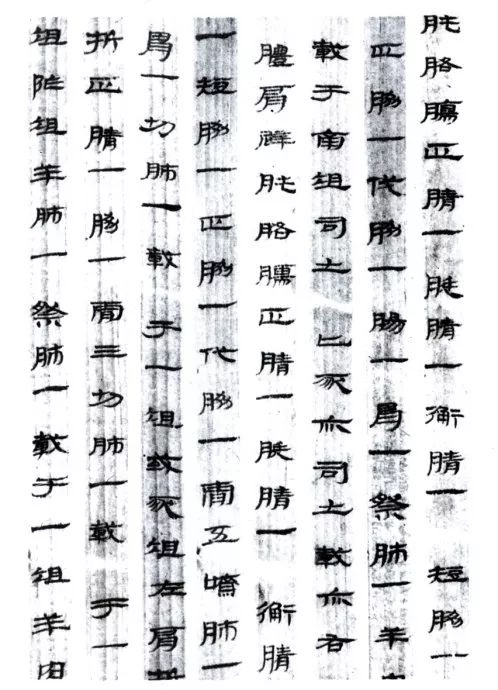 肫胳臑正腈一脡腈一衡腈一短脅一
正脅一代脅一腸一胃一祭肺一羊
載于南俎司士匕豕亦司士載亦右
體肩肫胳臑正腈一脡腈一衡腈
一短脅一正脅一代脅一膚五嚌肺一
胃一切肺一載于一俎侑豕俎左肩
折正腈一脅一膚三切肺一載于一
俎阼俎羊肺一祭肺一載于一俎羊肉